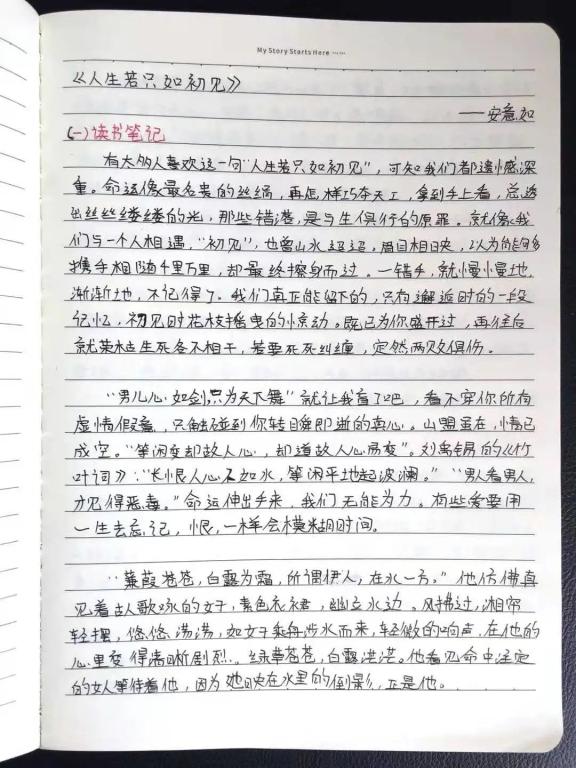 My Story Starts Here ……
《人生若只如初见》
——安意如
(一)读书笔记
有太多人喜欢这一句“人生若只如初见”,可知我们都遗憾深
重。命运像最名贵的丝绢,再怎样巧夺天工,拿到手上看,总透
出丝丝缕缕的光,那些错落,是与生俱行的原罪。就像我
们与一个人相遇,“初见”,也曾山水迢迢,眉目相映,以为能够
携手相随千里万里,却最终擦身而过。一错手,就慢慢地
渐渐地,不记得了。我们真正能留下的,只有邂逅时的一段
记忆,初见时花枝摇曳的惊动。既已为你盛开过,再往后
就荣枯生死各不相干,若要死死纠缠,定然两败俱伤。
“男儿心如剑,只为天下舞”就让我盲了吧,看不穿你所有
虚情假意,只触碰到你转瞬即逝的真心。山盟虽在,情已
成空。“等闲变却故人心,却道故人心易变”。刘禹锡的《竹
叶词》:“长恨人心不如水,等闲平地起波澜。”“男人看男人,
才见得恶毒。”命运伸出手来,我们无能为力。有些爱要用
一生去忘记,恨,一样会模糊时间。
“蒹葭苍苍,白露为霜,所谓伊人,在水一方。”他仿佛真
见着古人歌咏的女子,素色衣裙,幽立水边。风拂过,湘帘
轻摆,悠悠荡荡,如女子乘舟涉水而来,轻微的响声,在他的
心里变得清晰剧烈。绿草苍苍,白露茫茫。他看见命中注定
的女人等待着他,因为她映在水里的倒影,正是他。